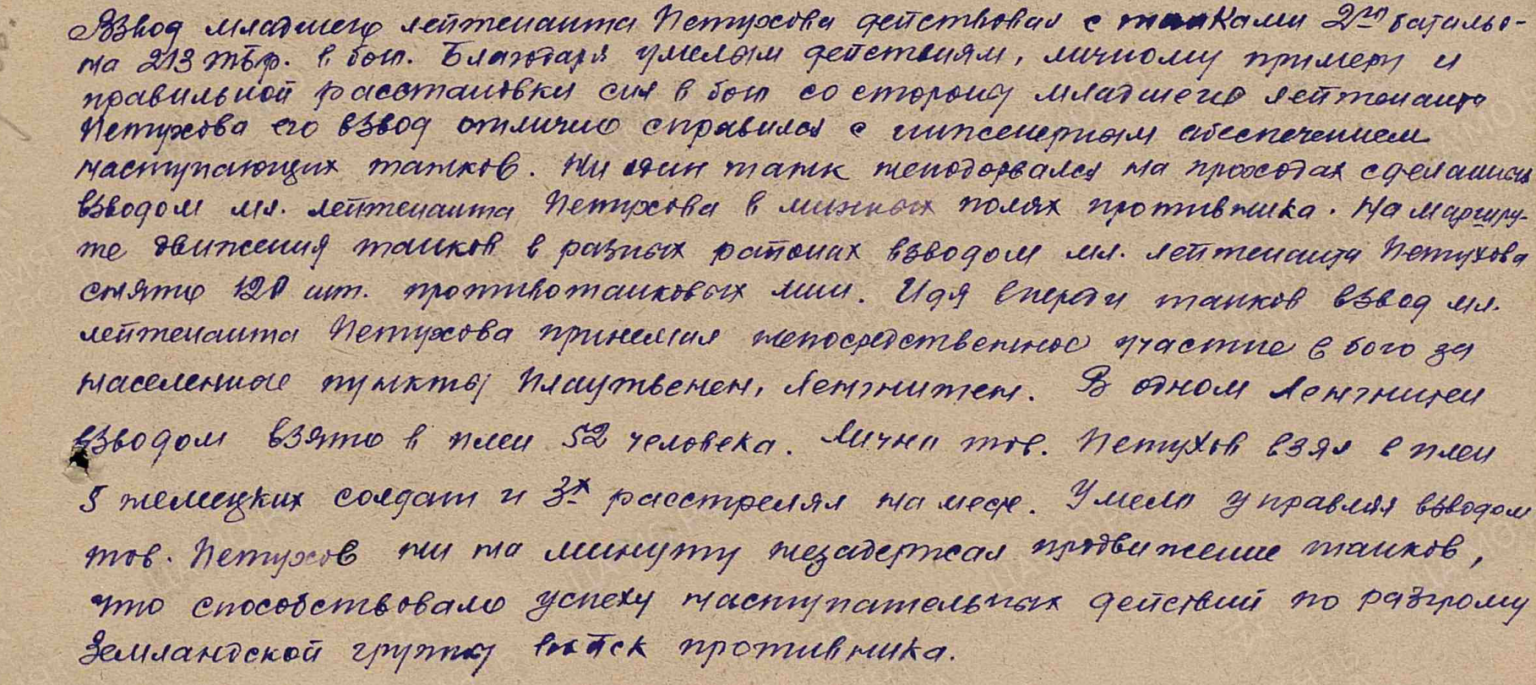 Взвод младшего лейтенанта Петухова действовал с танками 2го батальо-
на 213 тбр. в бою. Благодаря умелым действиям, личному примеру и
правильной расстановки сил в бою со стороны младшего лейтенанта
Петухова его взвод отлично справился с инженерным обеспечением
наступающих танков. Ни один танк неподорвался на проходах сделанных
взводом мл. лейтенанта Петухова в минных полях противника. На маршру-
те движения танков в разных районах взводом мл. лейтенанта Петухова
снято 120 шт. противотанковых мин. Идя впереди танков взвод мл.
лейтенанта Петухова принимал непосредственное участие в бою за
населенные пункты Плаутвенен, Ленгнитен. В одном Ленгнитен
взводом взято в плен 52 человека. Лично тов. Петухов взял в плен
5 немецких солдат и 3х расстрелял на месте. Умело управляя взводом
тов. Петухов ни на минуту незадержал продвижение танков,
что способствовало успеху наступательных действий по разгрому
Земландской группы войск противника.